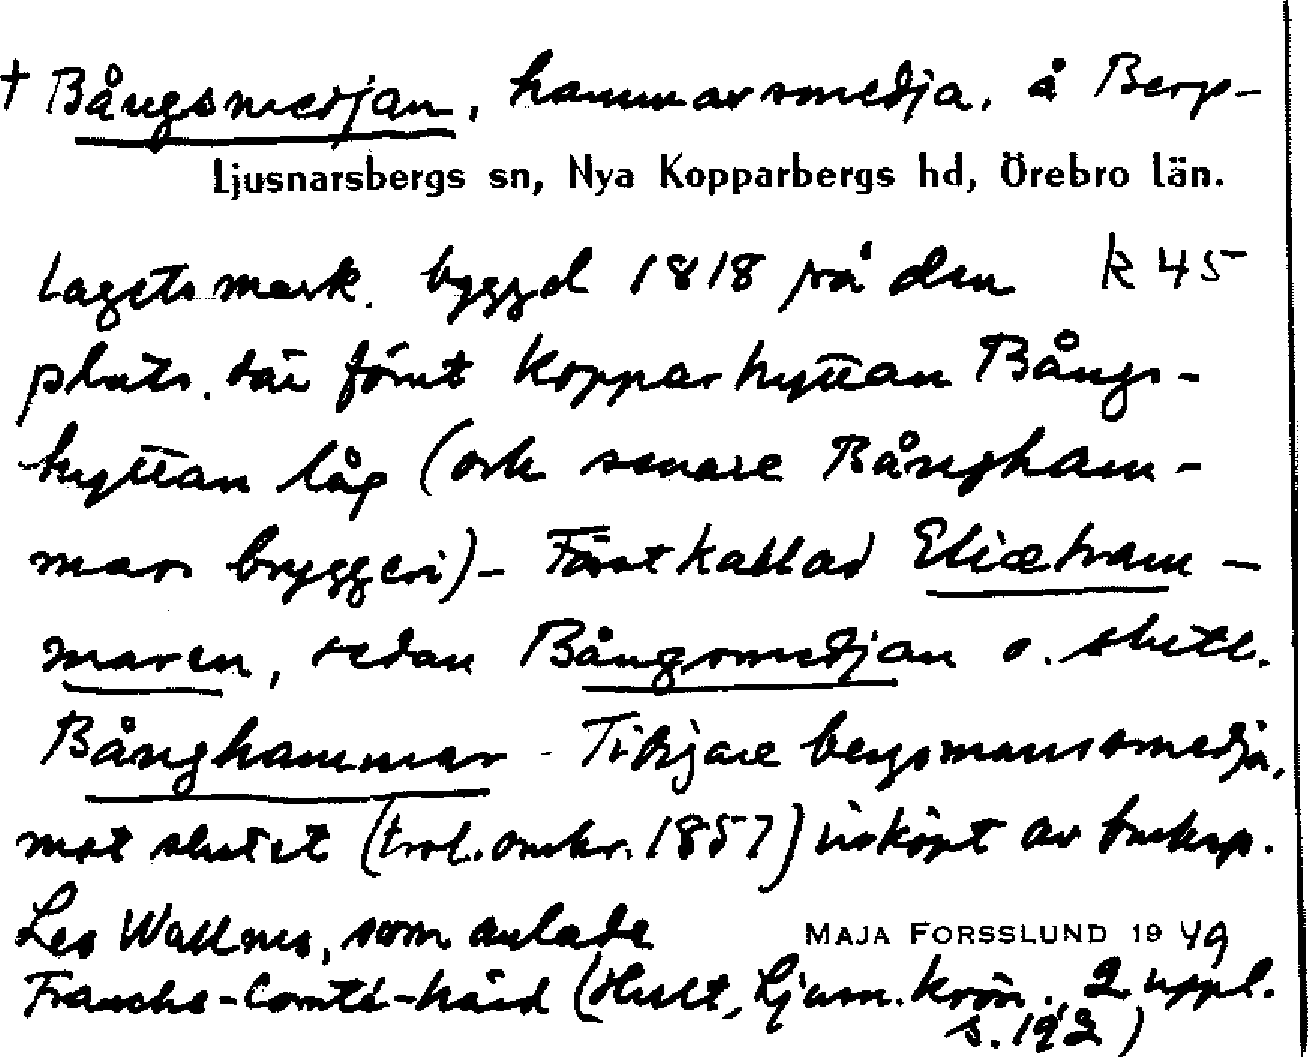 † Bångsmedjan, hammarsmedja, å Berg-
Ljusnarsbergs sn, Nya Kopparbergs hd, Örebro län.
lagets mark. byggd 1818 på den K 45
plats, där förut kopparhyttan Bångs-
hyttan låg (och senare Bångham-
mars bryggeri) - Först kallad Eliæham-
maren, sedan Bångsmedjan o. slutl.
Bånghammar - Tidigare bergsmanssmedja,
mot slutet (trol. omkr. 1857) inköpt av bruksp.
Leo Wallner, som anlade MAJA FORSSLUND 19 49
Franche-Comté-härd (Hult, Ljusn. krön., 2 uppl.
s. 192)